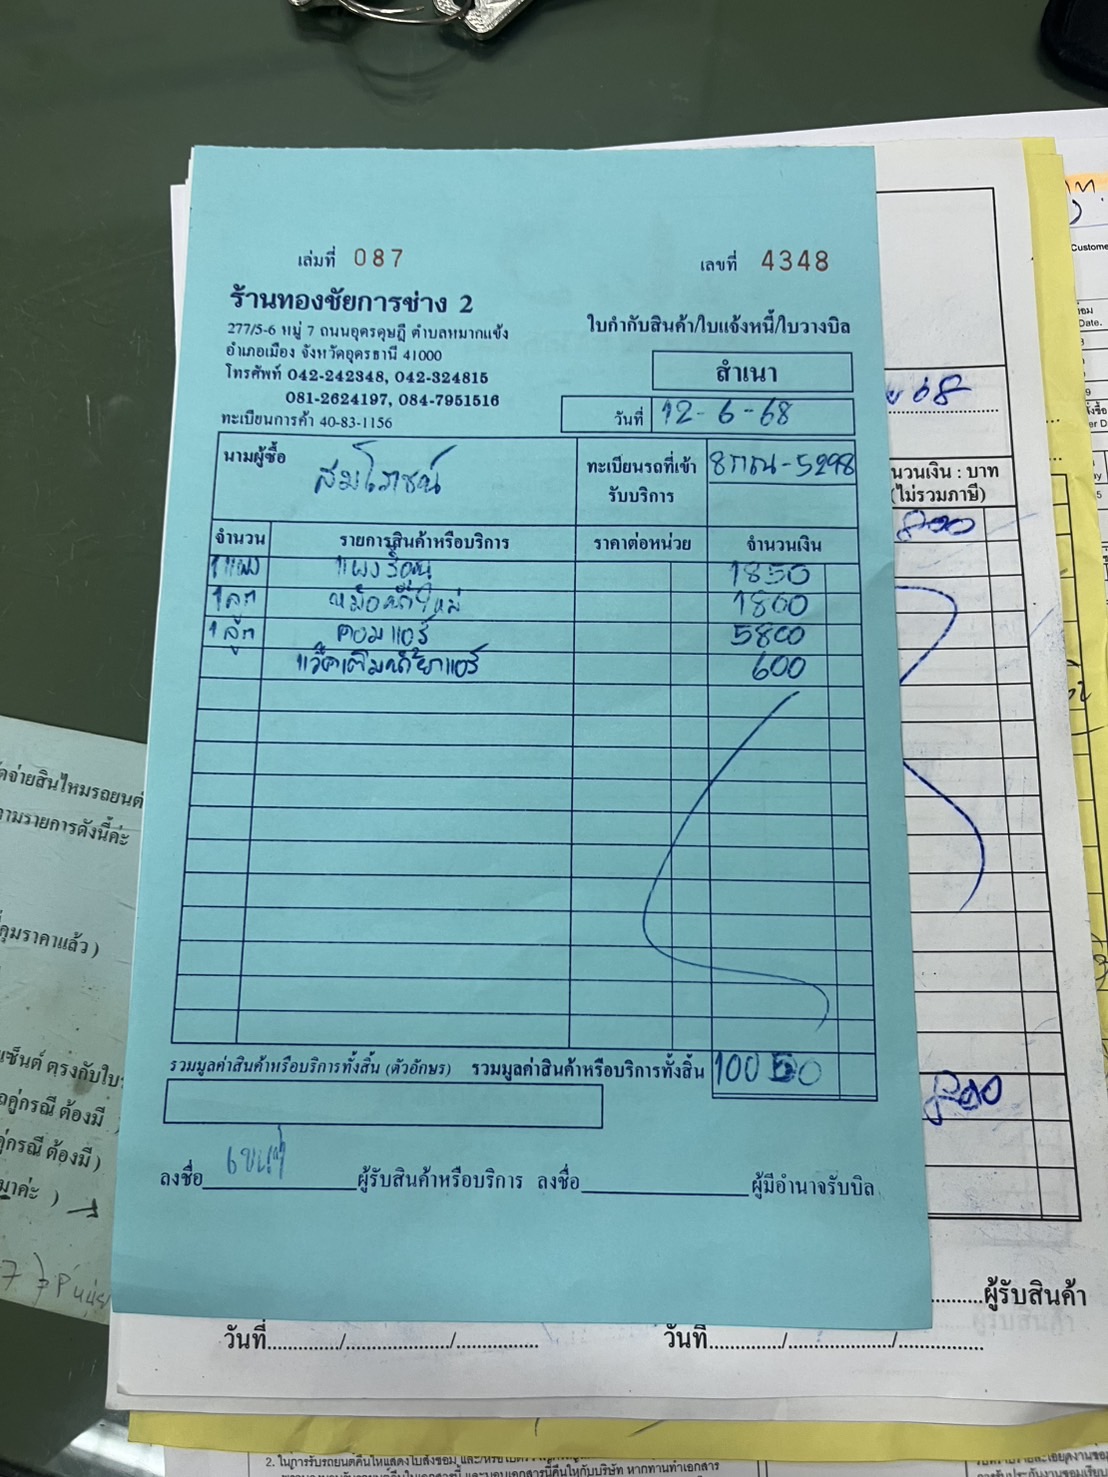 เล่มที่ 087
เลขที่ 4348
ร้านทองชัยการช่าง 2
277/5-6 หมู่ 7 ถนนอุดรดุษฎี ตำบลหมากแข้ง
อำเภอเมือง จังหวัดอุดรธานี 41000
โทรศัพท์ 042-242348, 042-324815
081-2624197, 084-7951516
ทะเบียนการค้า 40-83-1156
ใบกำกับสินค้า/ใบแจ้งหนี้/ใบวางบิล
สำเนา
วันที่ 12-6-68
นามผู้ซื้อ สมโภชน์
ทะเบียนรถที่เข้ารับบริการ 8กณ-5298
จำนวน รายการสินค้าหรือบริการ ราคาต่อหน่วย จำนวนเงิน
1แผง แผงร้อน 1850
1ลูก 1800
1ลูก คอมแอร์ 5800
แว็คเติมน้ำยาแอร์ 600
รวมมูลค่าสินค้าหรือบริการทั้งสิ้น (ตัวอักษร) รวมมูลค่าสินค้าหรือบริการทั้งสิ้น 10050
ลงชื่อ ผู้รับสินค้าหรือบริการ ลงชื่อ ผู้มีอำนาจรับบิล
Custome
Date.
68
นวนเงิน : บาท
(ไม่รวมภาษี)
800
800
จ่ายสินไหมรถยนต์
ตามรายการดังนี้ค่ะ
คุมราคาแล้ว )
เซ็นต์ ตรงกับใบ
คู่กรณี ต้องมี
คู่กรณี ต้องมี )
มาค่ะ )
ผู้รับสินค้า
วันที่............/...................../................ วันที่............/...................../................
2. ในการรับรถยนต์คืนให้แสดงใบสั่งซ่อม